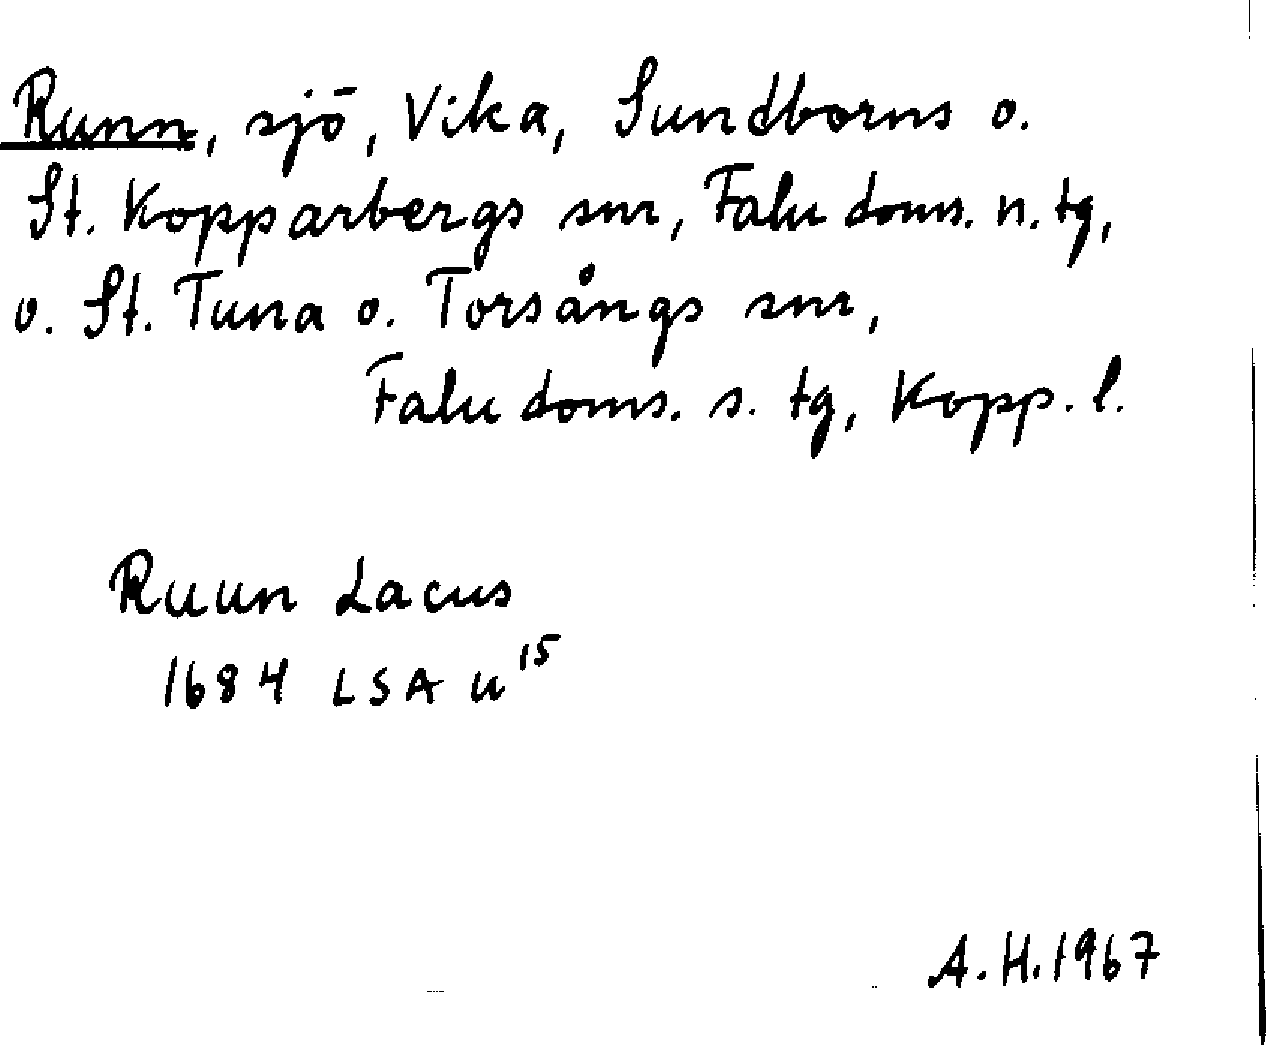 Runn, sjö, Vika, Sundborns o.
St. Kopparbergs snr, Falu doms. n. tg,
o. St. Tuna o. Torsångs snr,
Falu doms. s. tg, Kopp. l.
Ruun Lacus
1684 LSA u¹⁵
A.H. 1967